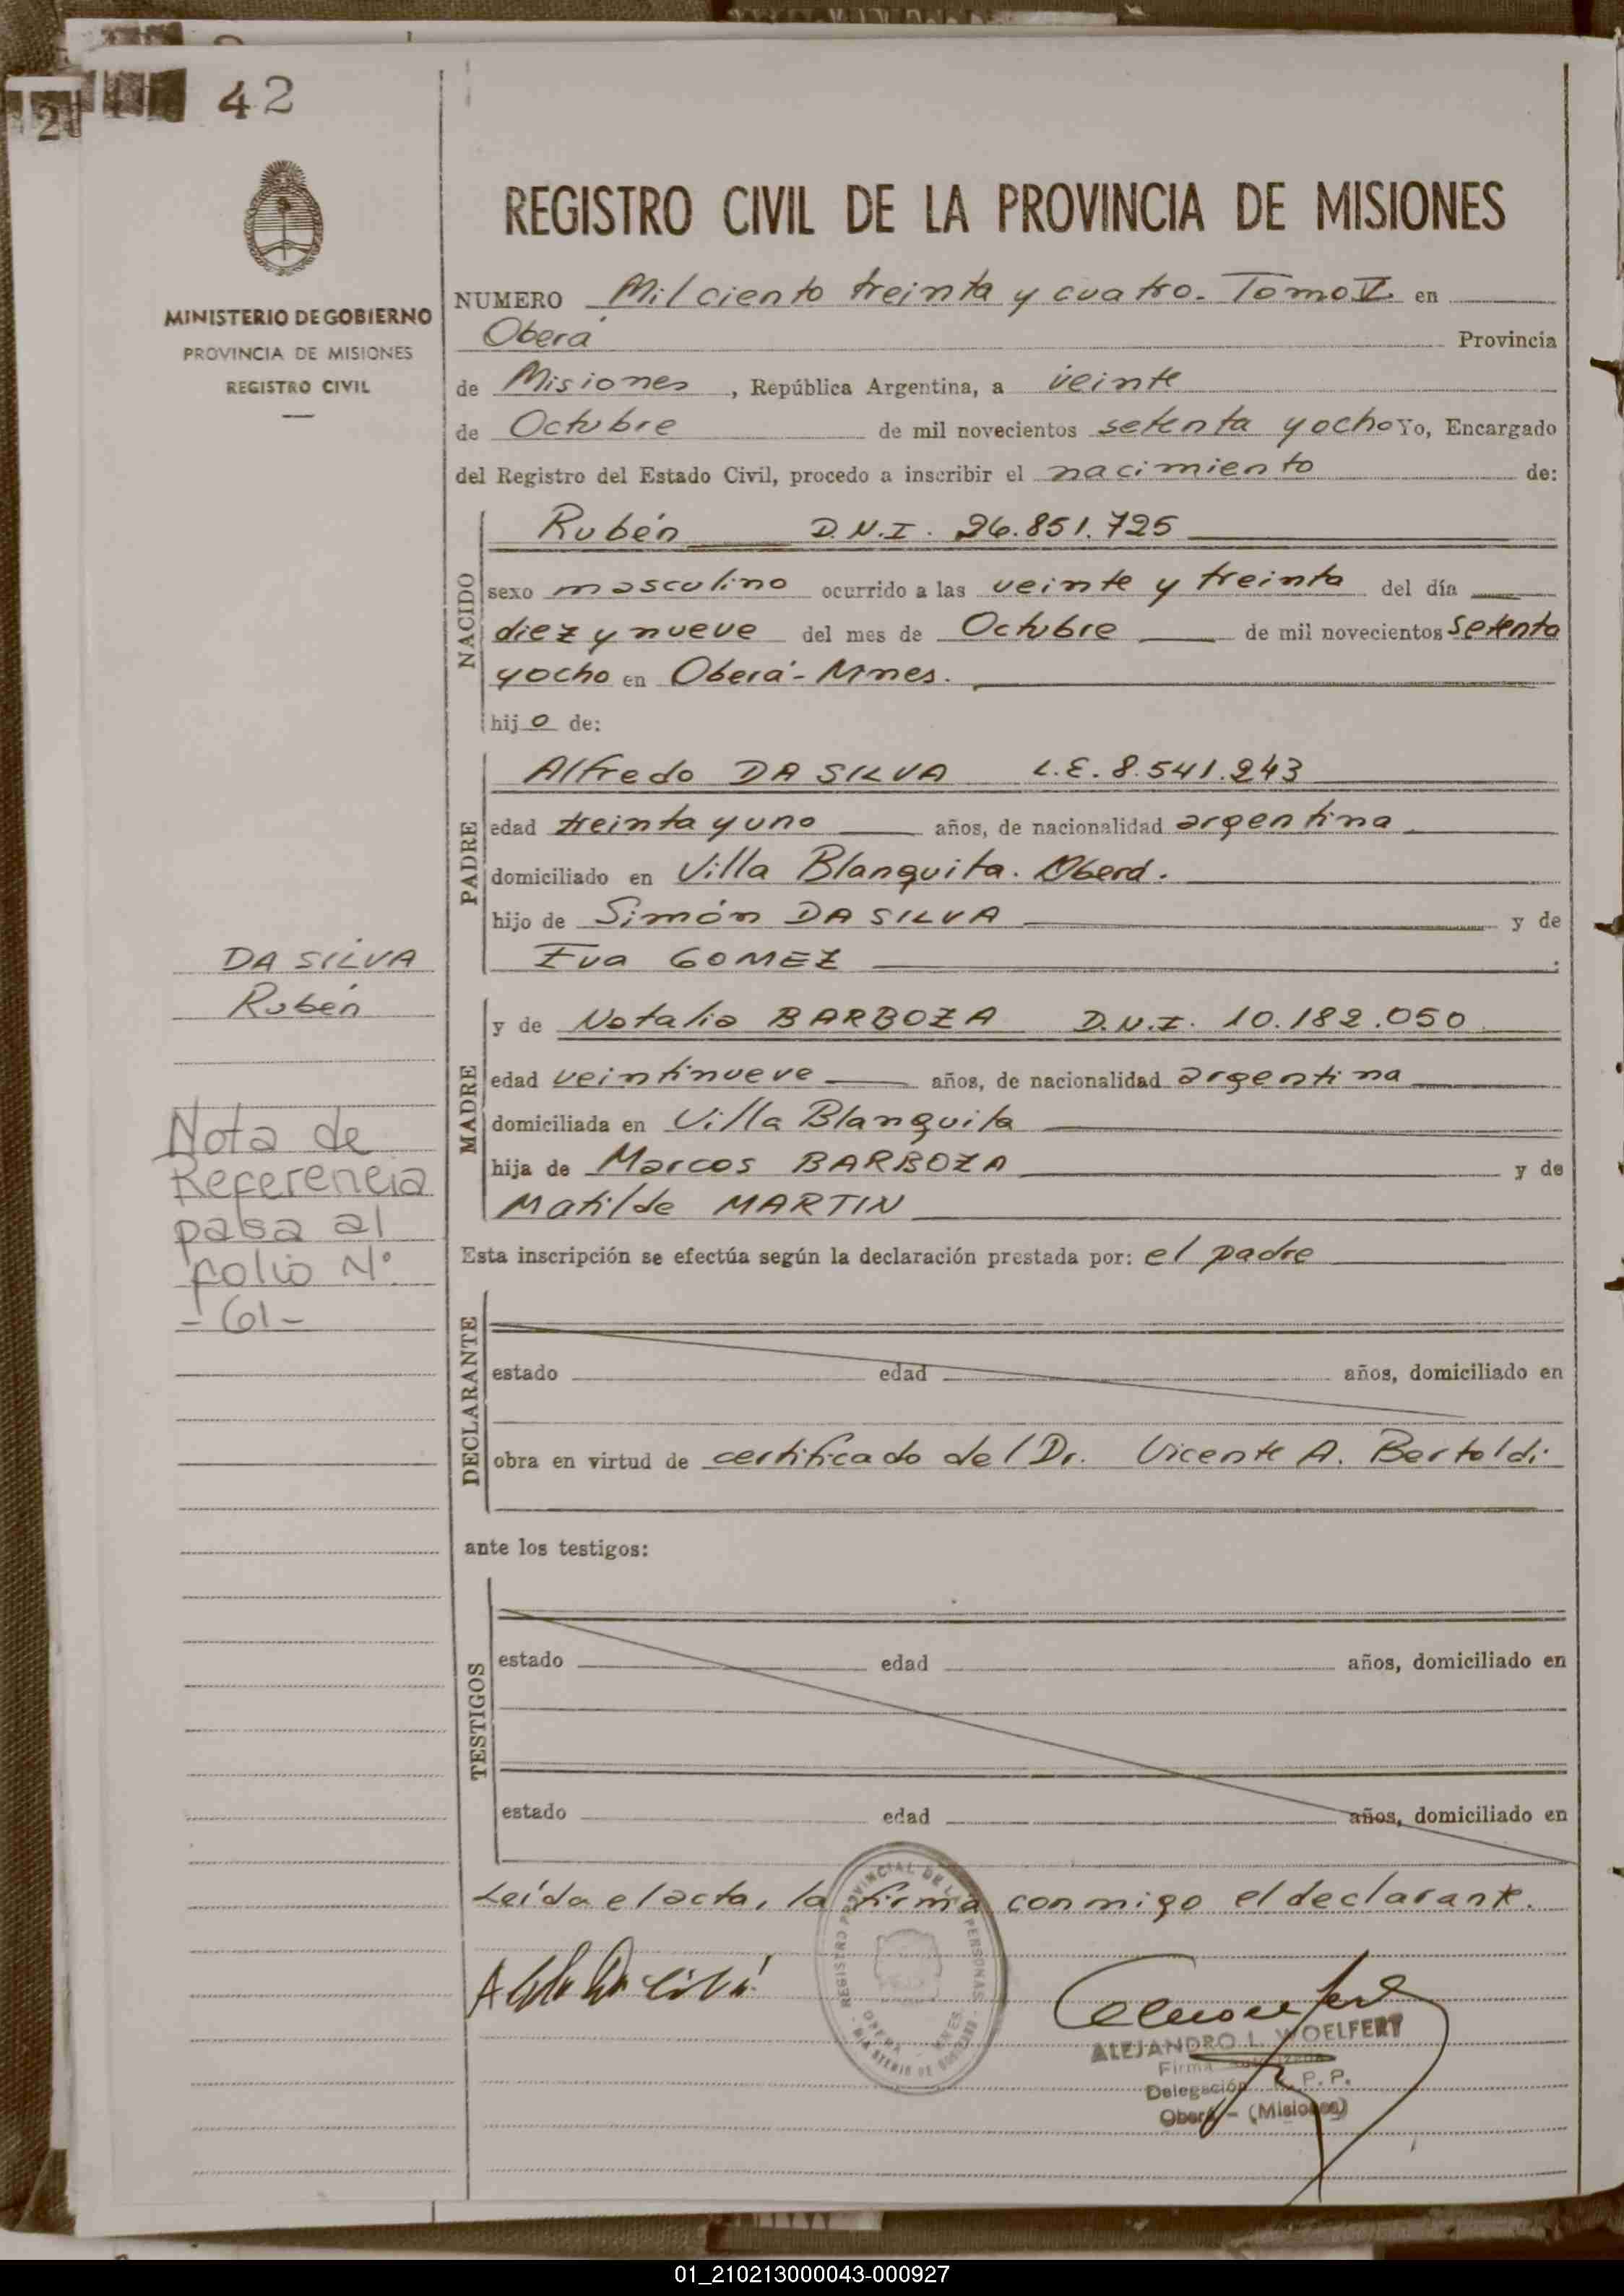 42
2
MINISTERIO DE GOBIERNO
PROVINCIA DE MISIONES
REGISTRO CIVIL
REGISTRO CIVIL DE LA PROVINCIA DE MISIONES
NUMERO Mil ciento treinta y cuatro. Tomo V. en
Oberá Provincia
de Misiones, República Argentina, a veinte
de Octubre de mil novecientos setenta y ocho Yo, Encargado
del Registro del Estado Civil, procedo a inscribir el nacimiento de:
NACIDO
Rubén D.N.I. 26.851.725
sexo masculino ocurrido a las veinte y treinta del día
diez y nueve del mes de Octubre de mil novecientos setenta
y ocho en Oberá - Mnes.
hijo de:
PADRE
Alfredo DA SILVA L.E. 8.541.243
edad treinta y uno años, de nacionalidad argentina
domiciliado en Villa Blanquita. Oberá.
hijo de Simón DA SILVA y de
Eva GOMEZ
DA SILVA
Rubén
MADRE
y de Natalia BARBOZA D.N.I. 10.182.050
edad veintinueve años, de nacionalidad argentina
domiciliada en Villa Blanquita
hija de Marcos BARBOZA y de
Matilde MARTIN
Nota de
Referencia
pasa al
folio Nº
- 61 -
Esta inscripción se efectúa según la declaración prestada por: el padre
DECLARANTE
estado edad años, domiciliado en
obra en virtud de certificado del Dr. Vicente A. Bertoldi
ante los testigos:
TESTIGOS
estado edad años, domiciliado en
estado edad años, domiciliado en
Leída el acta, la firma conmigo el declarante.
REGISTRO PROVINCIAL DE LAS PERSONAS
ALEJANDRO L. WOELFERT
Firma Autorizada
Delegación R. P. P.
Oberá - (Misiones)
01_210213000043-000927